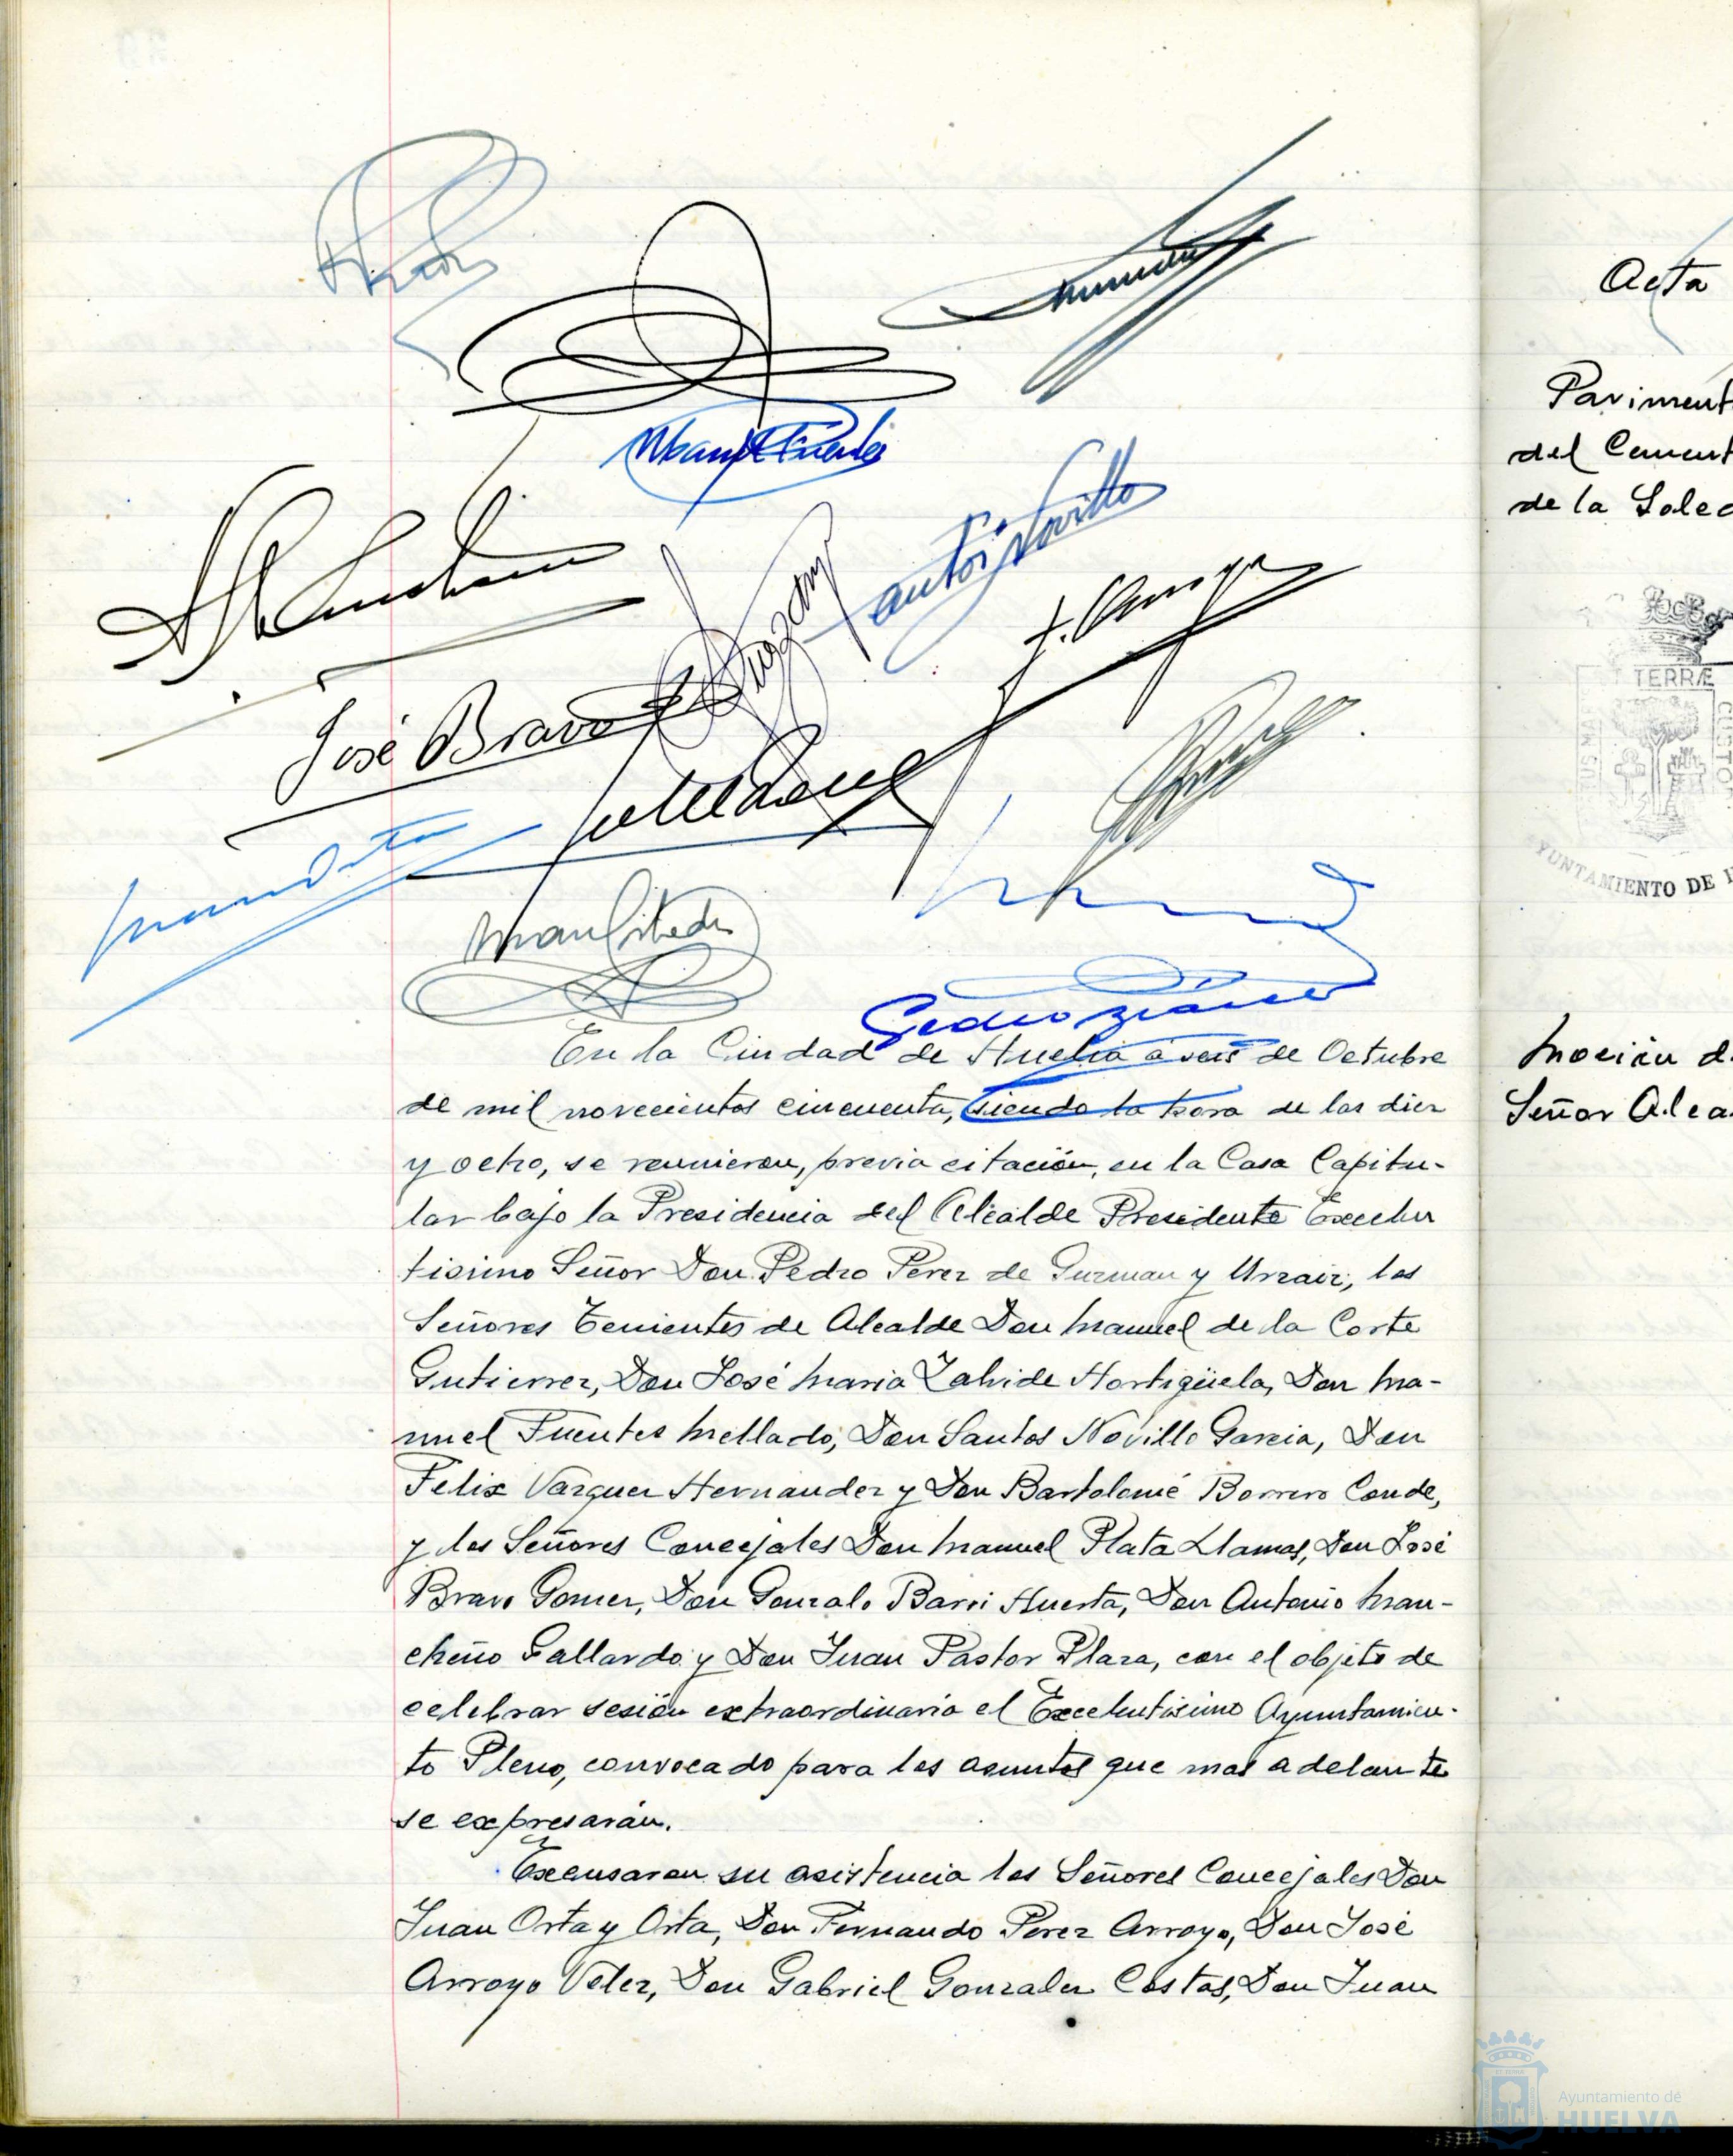 José Bravo
En la Ciudad de Huelva á seis de Octubre
de mil novecientos cincuenta, siendo la hora de las diez
y ocho, se reunieron, previa citación, en la Casa Capitu-
lar bajo la Presidencia del Alcalde Presidente Excelen
tisimo Señor Don Pedro Perez de Guzman y Urzaiz, los
Señores Tenientes de Alcalde Don Manuel de la Corte
Gutierrez, Don José Maria Zalvide Hortigüela, Don Ma-
nuel Fuentes Mellado, Don Santos Novillo Garcia, Don
Felix Vazquez Hernandez y Don Bartolomé Borrero Conde,
y los Señores Concejales Don Manuel Plata Llamas, Don José
Bravo Gomez, Don Gonzalo Barri Huerta, Don Antonio Man-
cheño Gallardo y Don Juan Pastor Plaza, con el objeto de
celebrar sesión extraordinaria el Excelentisimo Ayuntamien-
to Pleno, convocado para los asuntos que mas adelante
se expresarán.
Excusaron su asistencia los Señores Concejales Don
Juan Orta y Orta, Don Fernando Perez Arroyo, Don José
Arroyo Velez, Don Gabriel Gonzalez Costas, Don Juan
Acta
Paviment
del Cement
de la Soled
TERRÆ
YUNTAMIENTO DE
Moción d
Señor Alca
Ayuntamiento de
HUELVA